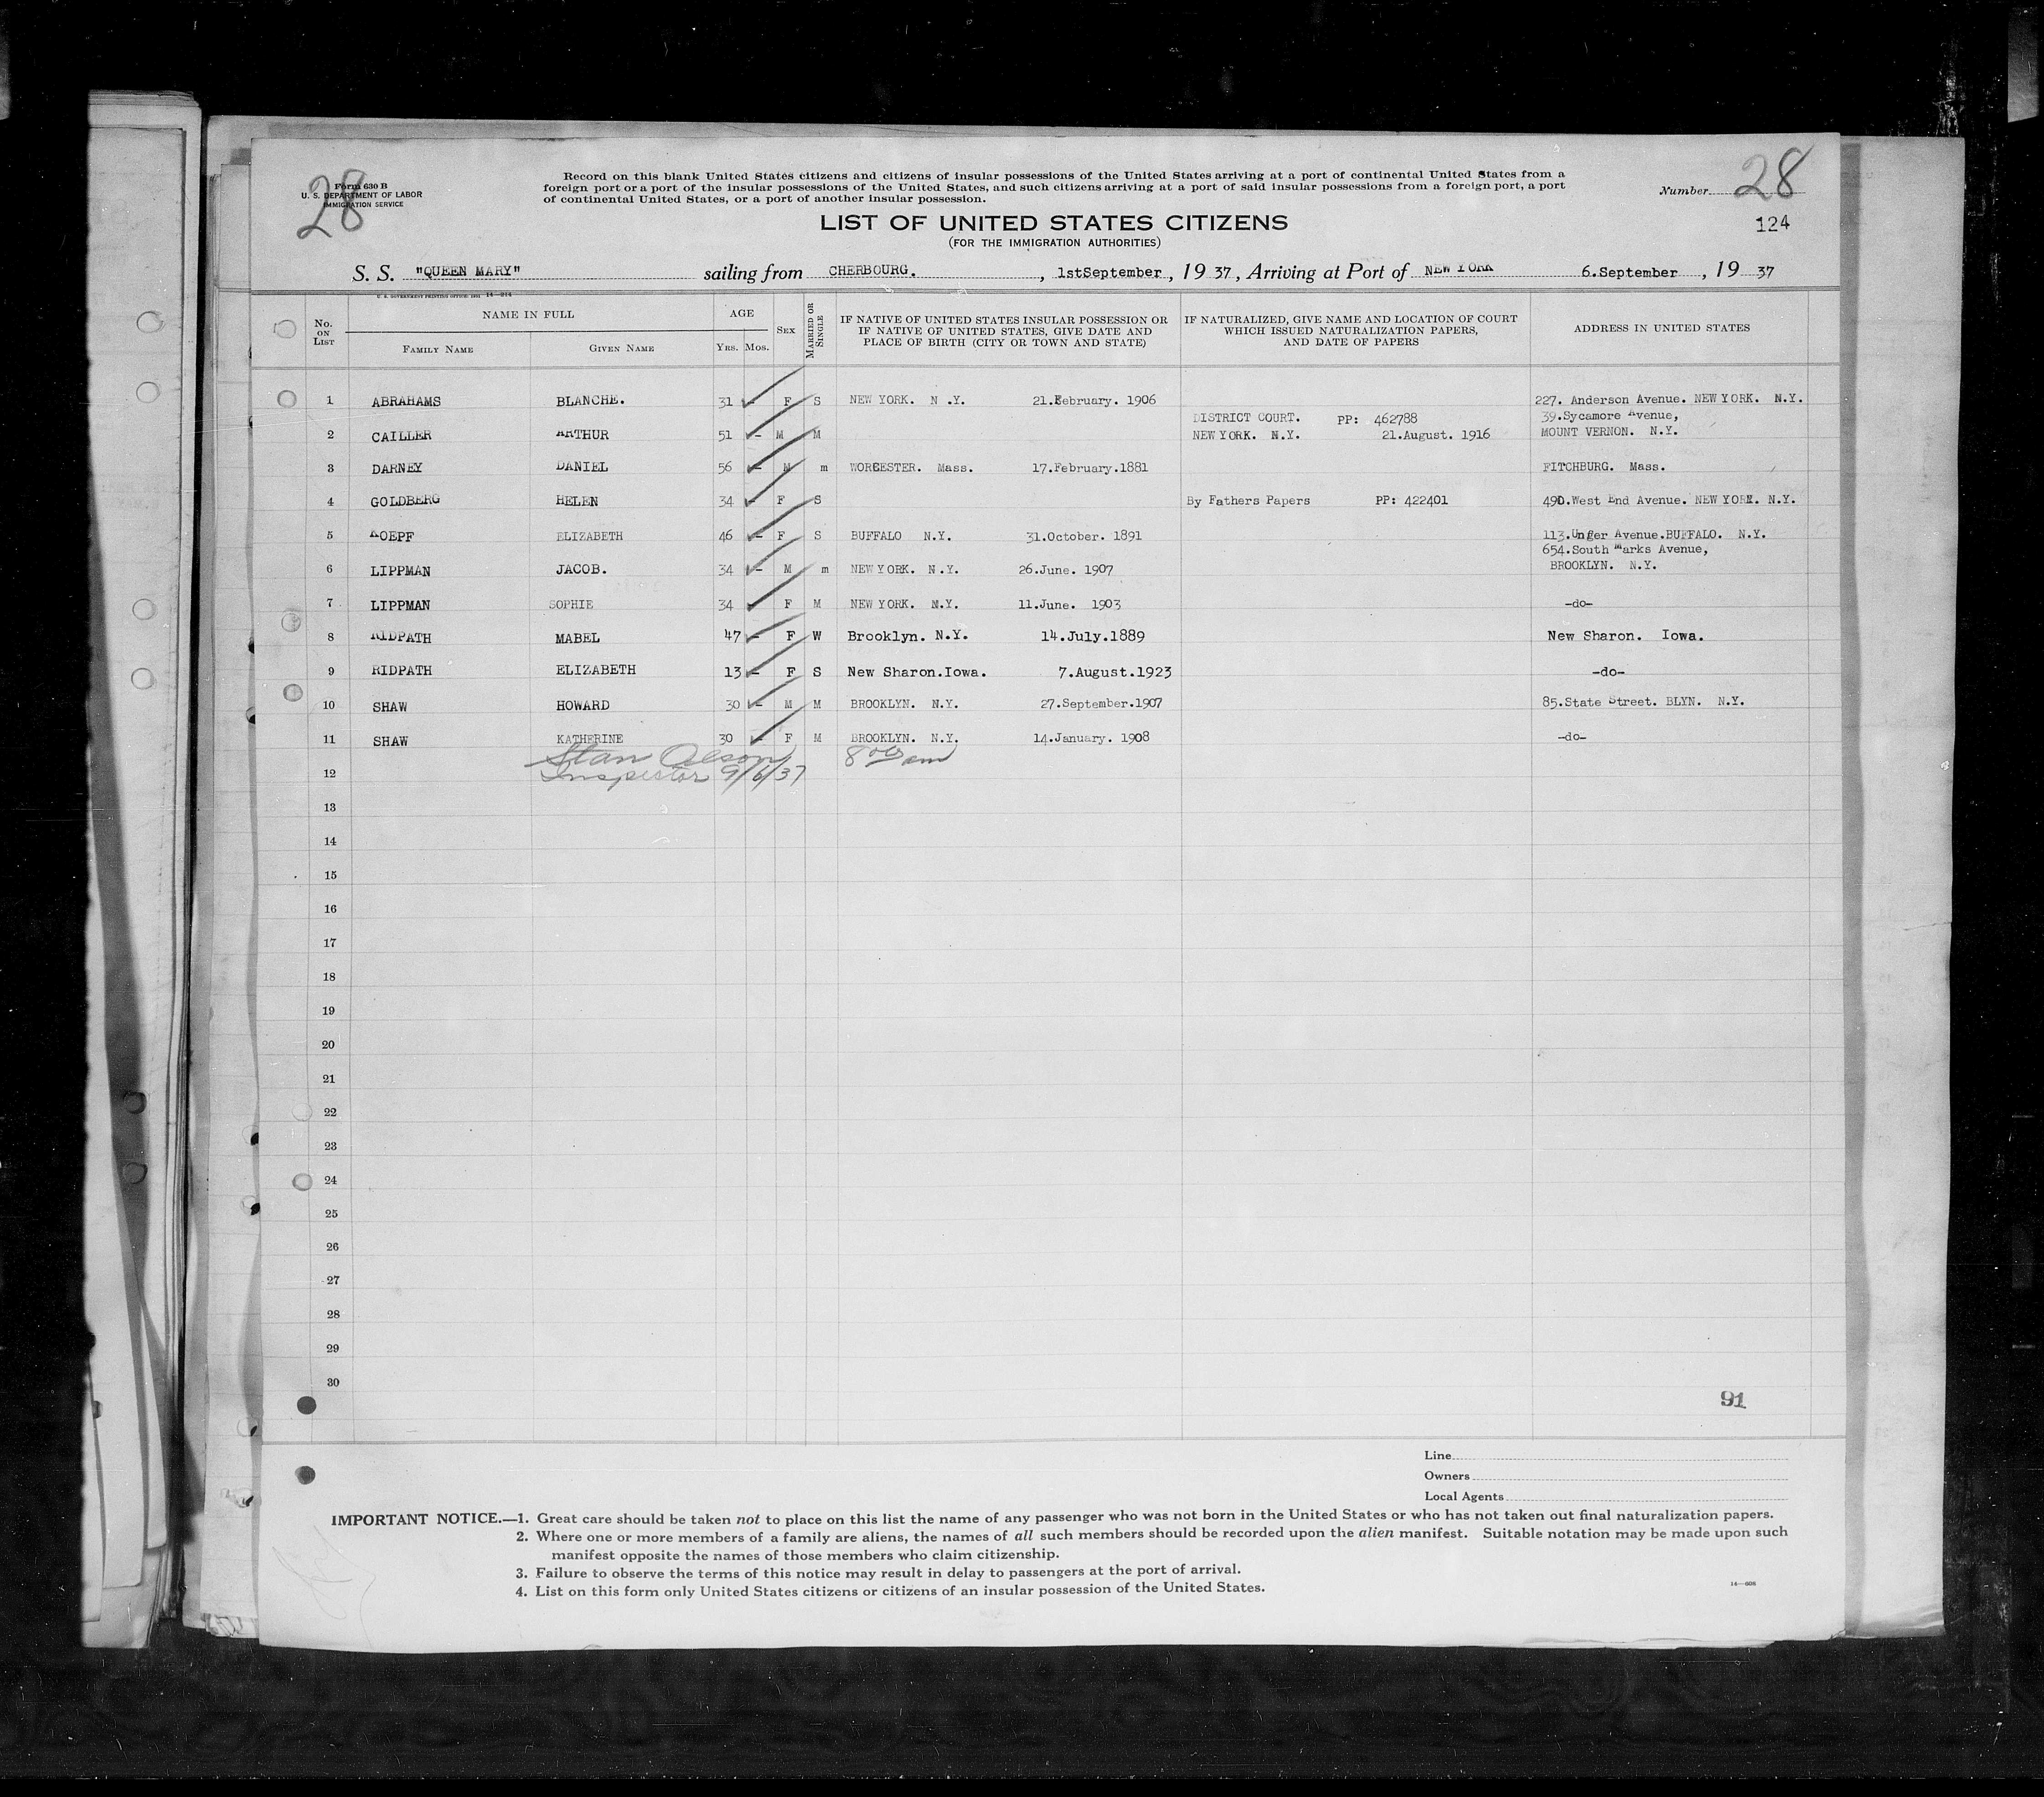 28
Form 630 B
U. S. DEPARTMENT OF LABOR
IMMIGRATION SERVICE
Record on this blank United States citizens and citizens of insular possessions of the United States arriving at a port of continental United States from a
foreign port or a port of the insular possessions of the United States, and such citizens arriving at a port of said insular possessions from a foreign port, a port
of continental United States, or a port of another insular possession.
Number 28
LIST OF UNITED STATES CITIZENS
(FOR THE IMMIGRATION AUTHORITIES)
124
S. S. "QUEEN MARY" sailing from CHERBOURG. , 1stSeptember , 19 37 , Arriving at Port of NEW YORK 6.September , 19 37
No. ON LIST NAME IN FULL FAMILY NAME GIVEN NAME AGE YRS. MOS. SEX MARRIED OR SINGLE
IF NATIVE OF UNITED STATES INSULAR POSSESSION OR IF NATIVE OF UNITED STATES, GIVE DATE AND PLACE OF BIRTH (CITY OR TOWN AND STATE)
IF NATURALIZED, GIVE NAME AND LOCATION OF COURT WHICH ISSUED NATURALIZATION PAPERS, AND DATE OF PAPERS
ADDRESS IN UNITED STATES
1 ABRAHAMS BLANCHE. 31 - F S NEW YORK. N .Y. 21.February. 1906 227. Anderson Avenue. NEW YORK. N.Y.
DISTRICT COURT. PP: 462788 39.Sycamore Avenue,
2 CAILLER ARTHUR 51 - M M NEW YORK. N.Y. 21.August. 1916 MOUNT VERNON. N.Y.
3 DARNEY DANIEL 56 - M m WORCESTER. Mass. 17.February.1881 FITCHBURG. Mass.
4 GOLDBERG HELEN 34 - F S By Fathers Papers PP: 422401 490.West End Avenue. NEW YORK. N.Y.
5 KOEPF ELIZABETH 46 - F S BUFFALO N.Y. 31.October. 1891 113.Unger Avenue.BUFFALO. N.Y.
654.South Marks Avenue,
6 LIPPMAN JACOB. 34 - M m NEW YORK. N.Y. 26.June. 1907 BROOKLYN. N.Y.
7 LIPPMAN SOPHIE 34 - F M NEW YORK. N.Y. 11.June. 1903 -do-
8 RIDPATH MABEL 47 - F W Brooklyn. N.Y. 14.July.1889 New Sharon. Iowa.
9 RIDPATH ELIZABETH 13 - F S New Sharon.Iowa. 7.August.1923 -do-
10 SHAW HOWARD 30 - M M BROOKLYN. N.Y. 27.September.1907 85.State Street. BLYN. N.Y.
11 SHAW KATHERINE 30 - F M BROOKLYN. N.Y. 14.January. 1908 -do-
Stan Olson
12 Inspector 9/6/37
13
14
15
16
17
18
19
20
21
22
23
24
25
26
27
28
29
30
91
Line
Owners
Local Agents
IMPORTANT NOTICE.—1. Great care should be taken not to place on this list the name of any passenger who was not born in the United States or who has not taken out final naturalization papers.
2. Where one or more members of a family are aliens, the names of all such members should be recorded upon the alien manifest. Suitable notation may be made upon such
manifest opposite the names of those members who claim citizenship.
3. Failure to observe the terms of this notice may result in delay to passengers at the port of arrival.
4. List on this form only United States citizens or citizens of an insular possession of the United States.